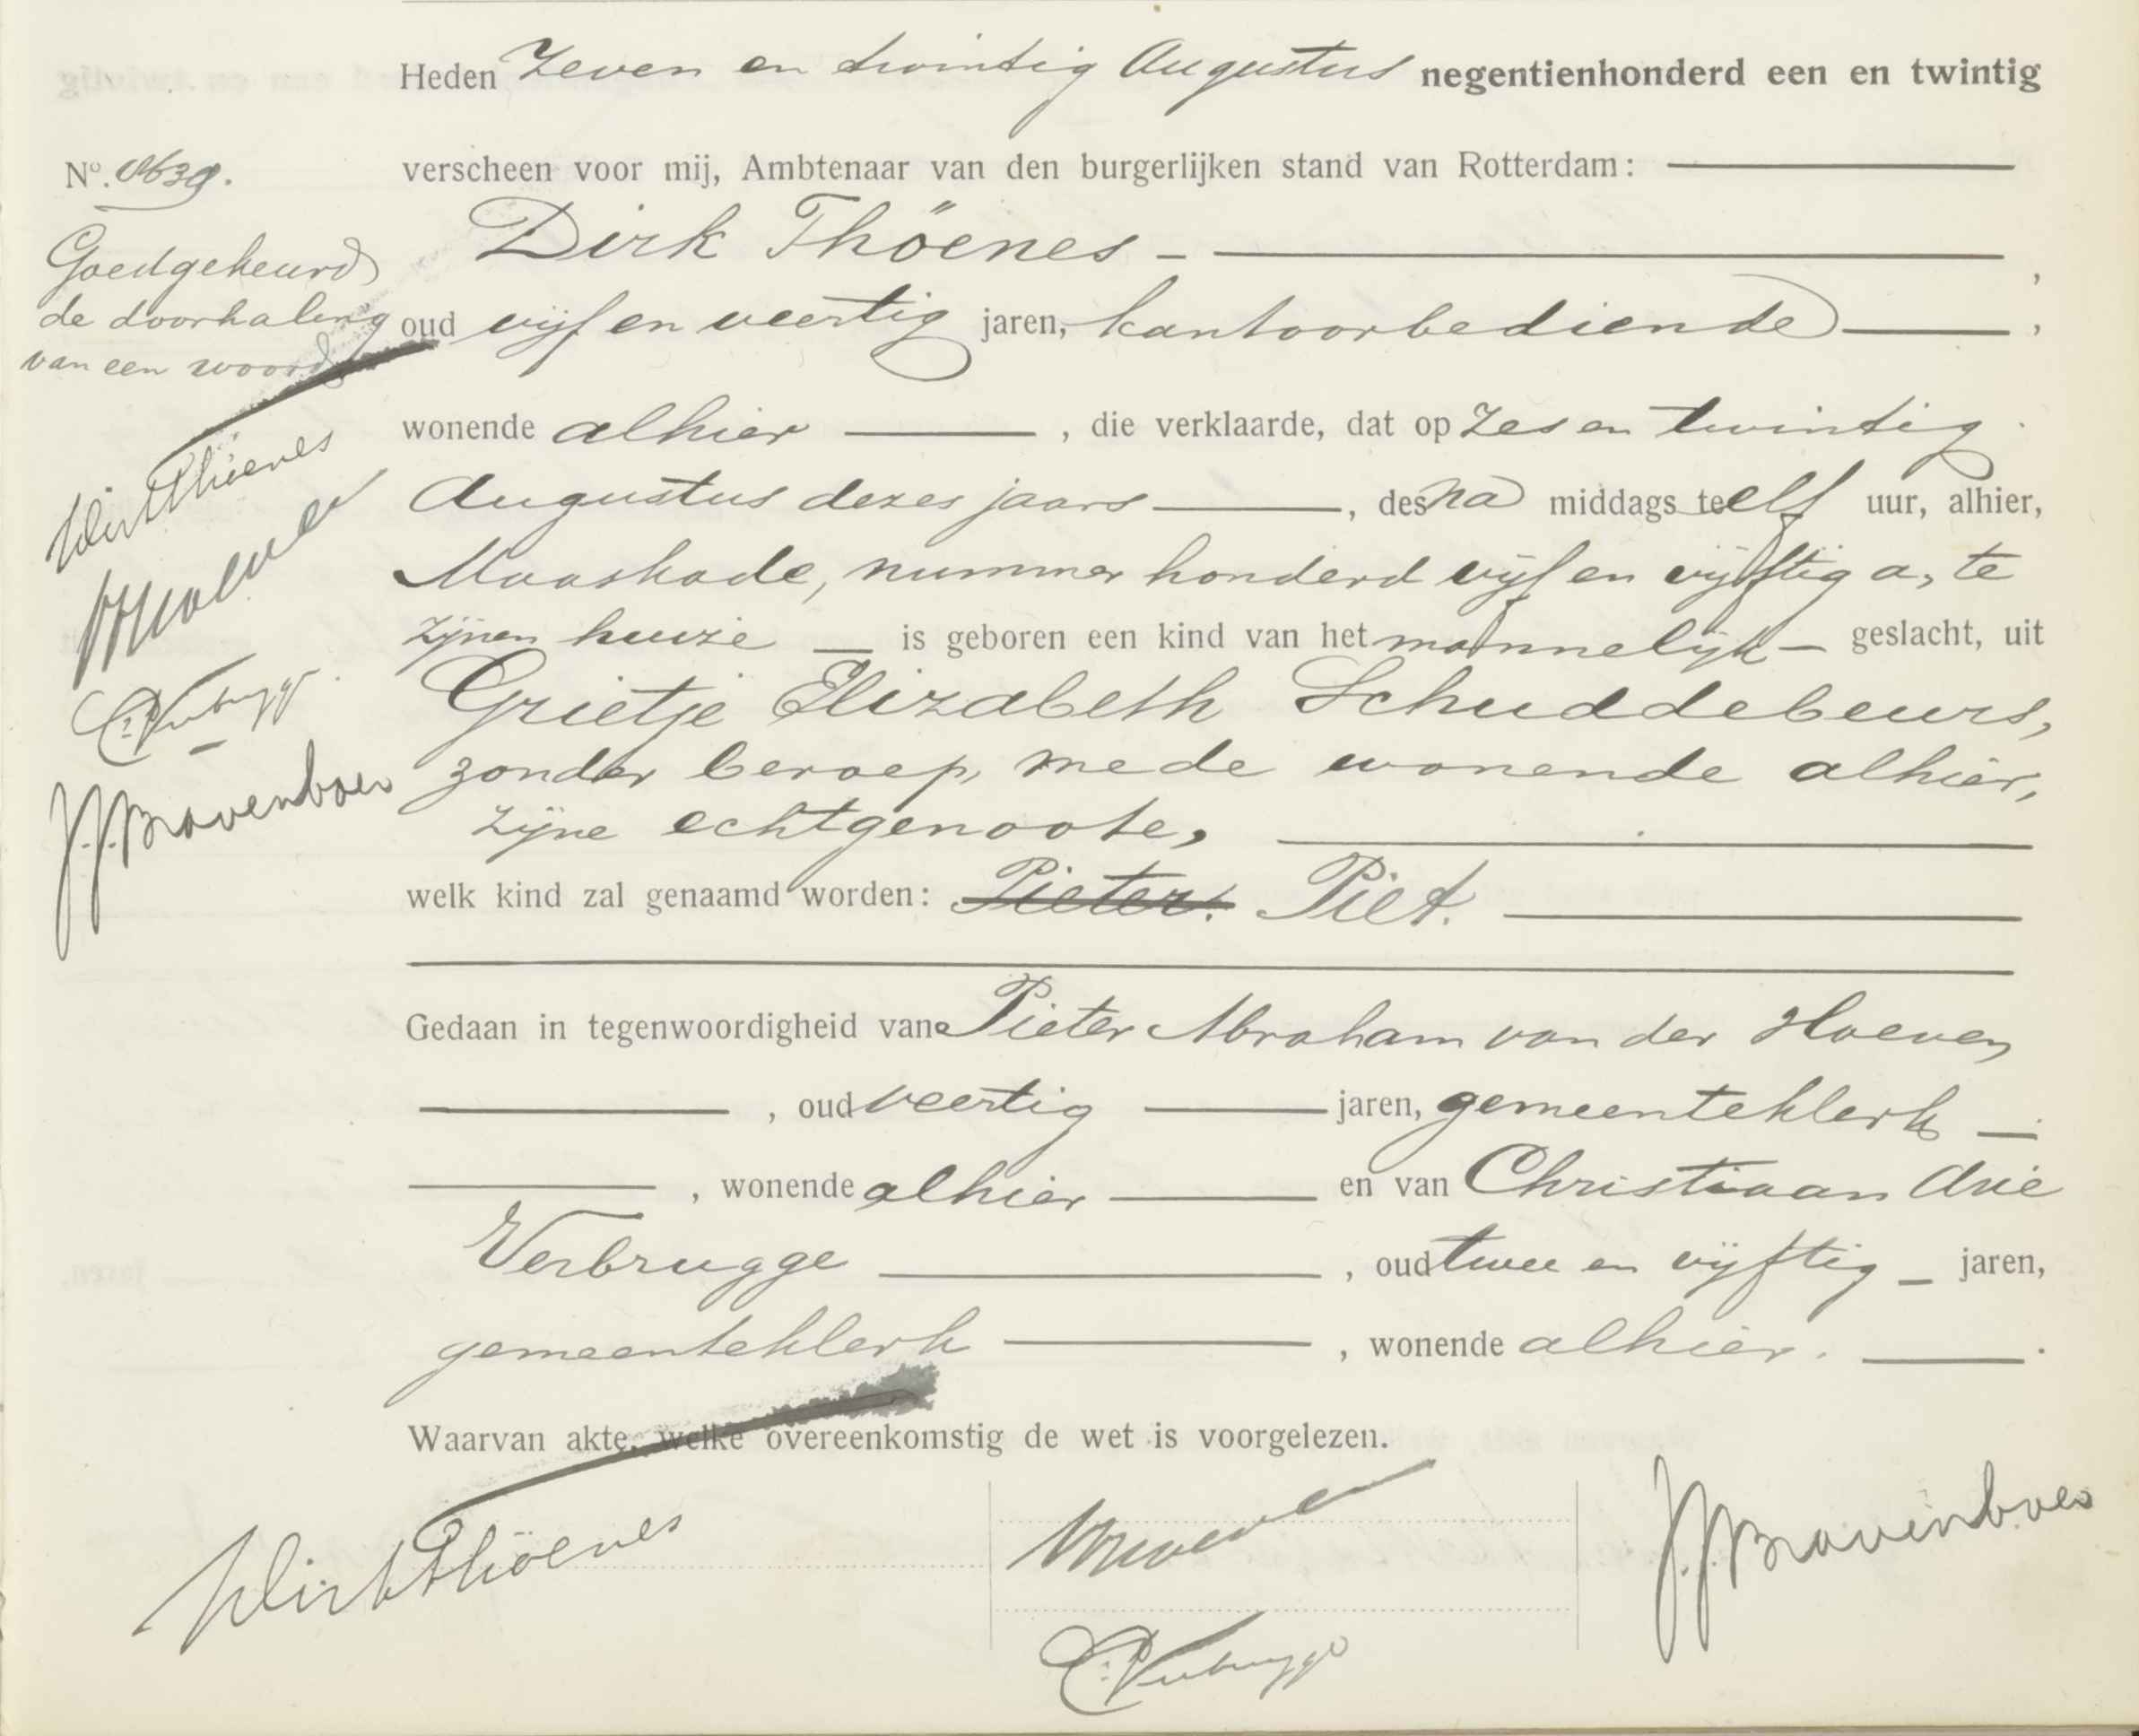 Heden Zeven en twintig Augustus negentienhonderd een en twintig
verscheen voor mij, Ambtenaar van den burgerlijken stand van Rotterdam:
Dirk Thöenes ,
oud vijf en veertig jaren, kantoorbediende ,
wonende alhier , die verklaarde, dat op Zes en twintig
Augustus dezes jaars , des na middags te elf uur, alhier,
Maaskade, nummer honderd vijf en vijftig a, te
zijnen huize is geboren een kind van het mannelijk geslacht, uit
Grietje Elizabeth Schuddebeurs,
zonder beroep, mede wonende alhier,
zijne echtgenoote,
welk kind zal genaamd worden: Pieter. Piet.
Gedaan in tegenwoordigheid van Pieter Abraham van der Hoeven
, oud veertig jaren, gemeenteklerk
, wonende alhier en van Christiaan Arie
Verbrugge , oud twee en vijftig jaren,
gemeenteklerk , wonende alhier.
Waarvan akte, welke overeenkomstig de wet is voorgelezen.
Dirk Thöenes
CAVerbrugge
J.J. Bravenboer
No.
Goedgekeurd
de doorhaling
van een woord
Dirk Thöenes
CAVerbrugge
J.J. Bravenboer